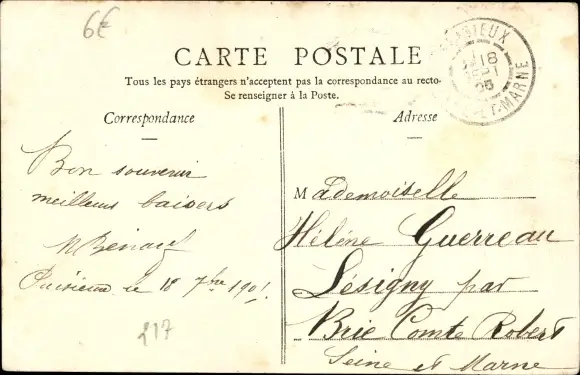 6€
CARTE POSTALE
Tous les pays étrangers n'acceptent pas la correspondance au recto-
Se renseigner à la Poste.
Correspondance
Adresse
18
SEPT
05
ET-MARNE
Bon souvenir
meilleurs baisers
le 18 7bre 190
Mademoiselle
Hélène Guerreau
Lésigny par
Brie Comte Robert
Seine et Marne
217